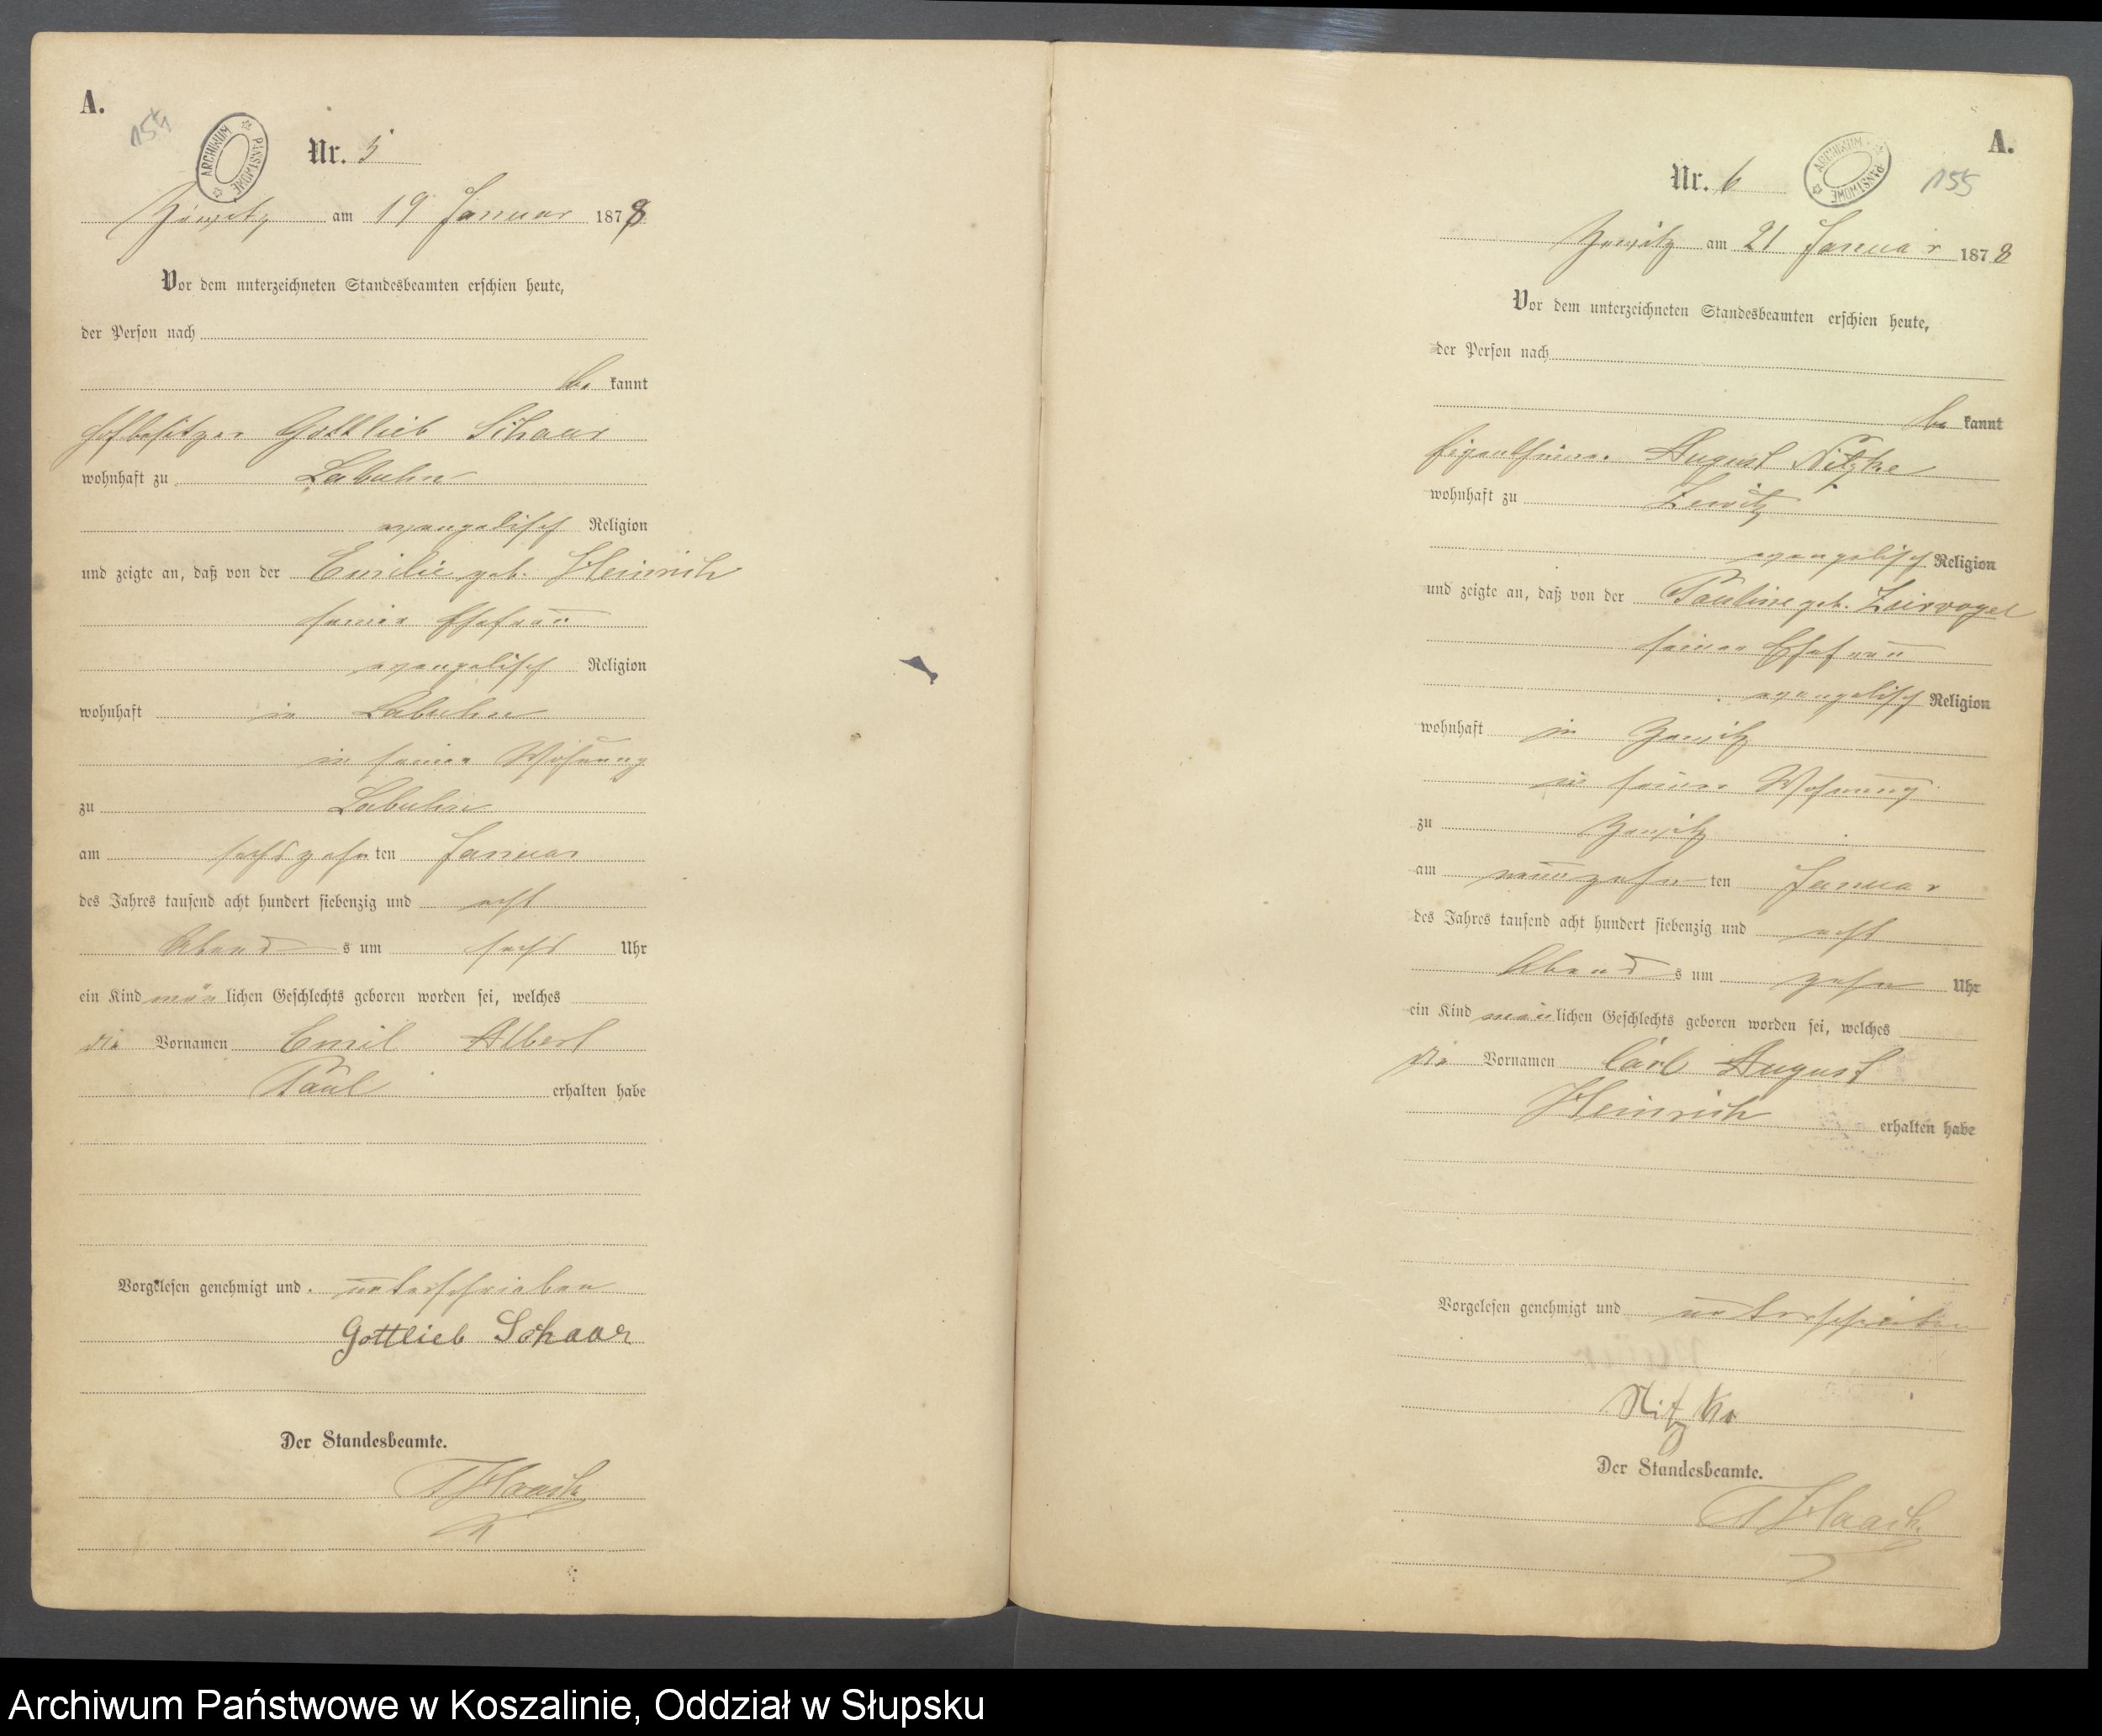 A.
154
ARCHIWUM PAŃSTWOWE
Nr. 5
Zewitz am 19 Januar 1878
Vor dem unterzeichneten Standesbeamten erschien heute,
der Person nach
be kannt
Hofbesitzer Gottlieb Schaar
wohnhaft zu Labuhn
evangelisch Religion
und zeigte an, daß von der Emilie geb. Heinrich
seiner Ehefrau
evangelisch Religion
wohnhaft in Labuhn
in seiner Wohnung
zu Labuhn
am sechszehn ten Januar
des Jahres tausend acht hundert siebenzig und acht
Abend s um sechs Uhr
ein Kind män lichen Geschlechts geboren worden sei, welches
die Vornamen Emil Albert
Paul erhalten habe
Vorgelesen genehmigt und unterschrieben
Gottlieb Schaar
Der Standesbeamte.
Haack
A.
Nr. 6
ARCHIWUM PAŃSTWOWE
155
Zewitz am 21 Januar 1878
Vor dem unterzeichneten Standesbeamten erschien heute,
der Person nach
be kannt
Eigenthümer August Nitzke
wohnhaft zu Zewitz
evangelisch Religion
und zeigte an, daß von der Pauline geb. Zuirvogel
seiner Ehefrau
evangelisch Religion
wohnhaft in Zewitz
in seiner Wohnung
zu Zewitz
am neunzehn ten Januar
des Jahres tausend acht hundert siebenzig und acht
Abend s um zehn Uhr
ein Kind män lichen Geschlechts geboren worden sei, welches
die Vornamen Carl August
Heinrich erhalten habe
Vorgelesen genehmigt und unterschrieben
Nitzke
Der Standesbeamte.
Haack
Archiwum Państwowe w Koszalinie, Oddział w Słupsku